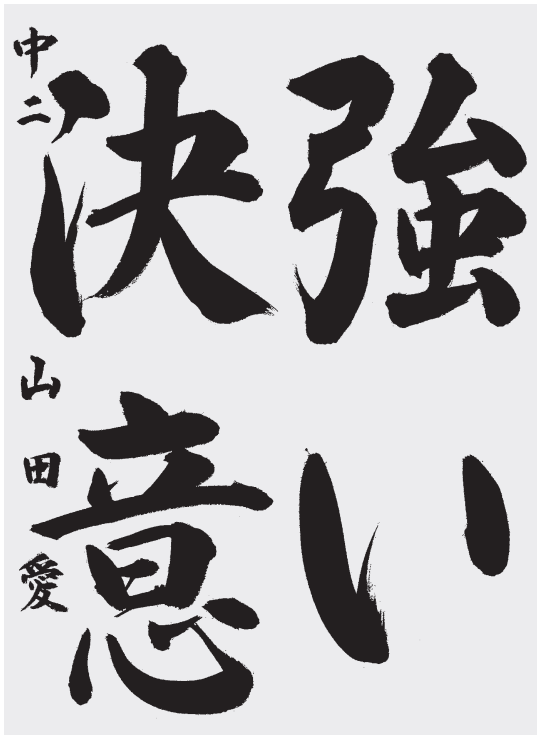 強い
決意
中二 山田 愛